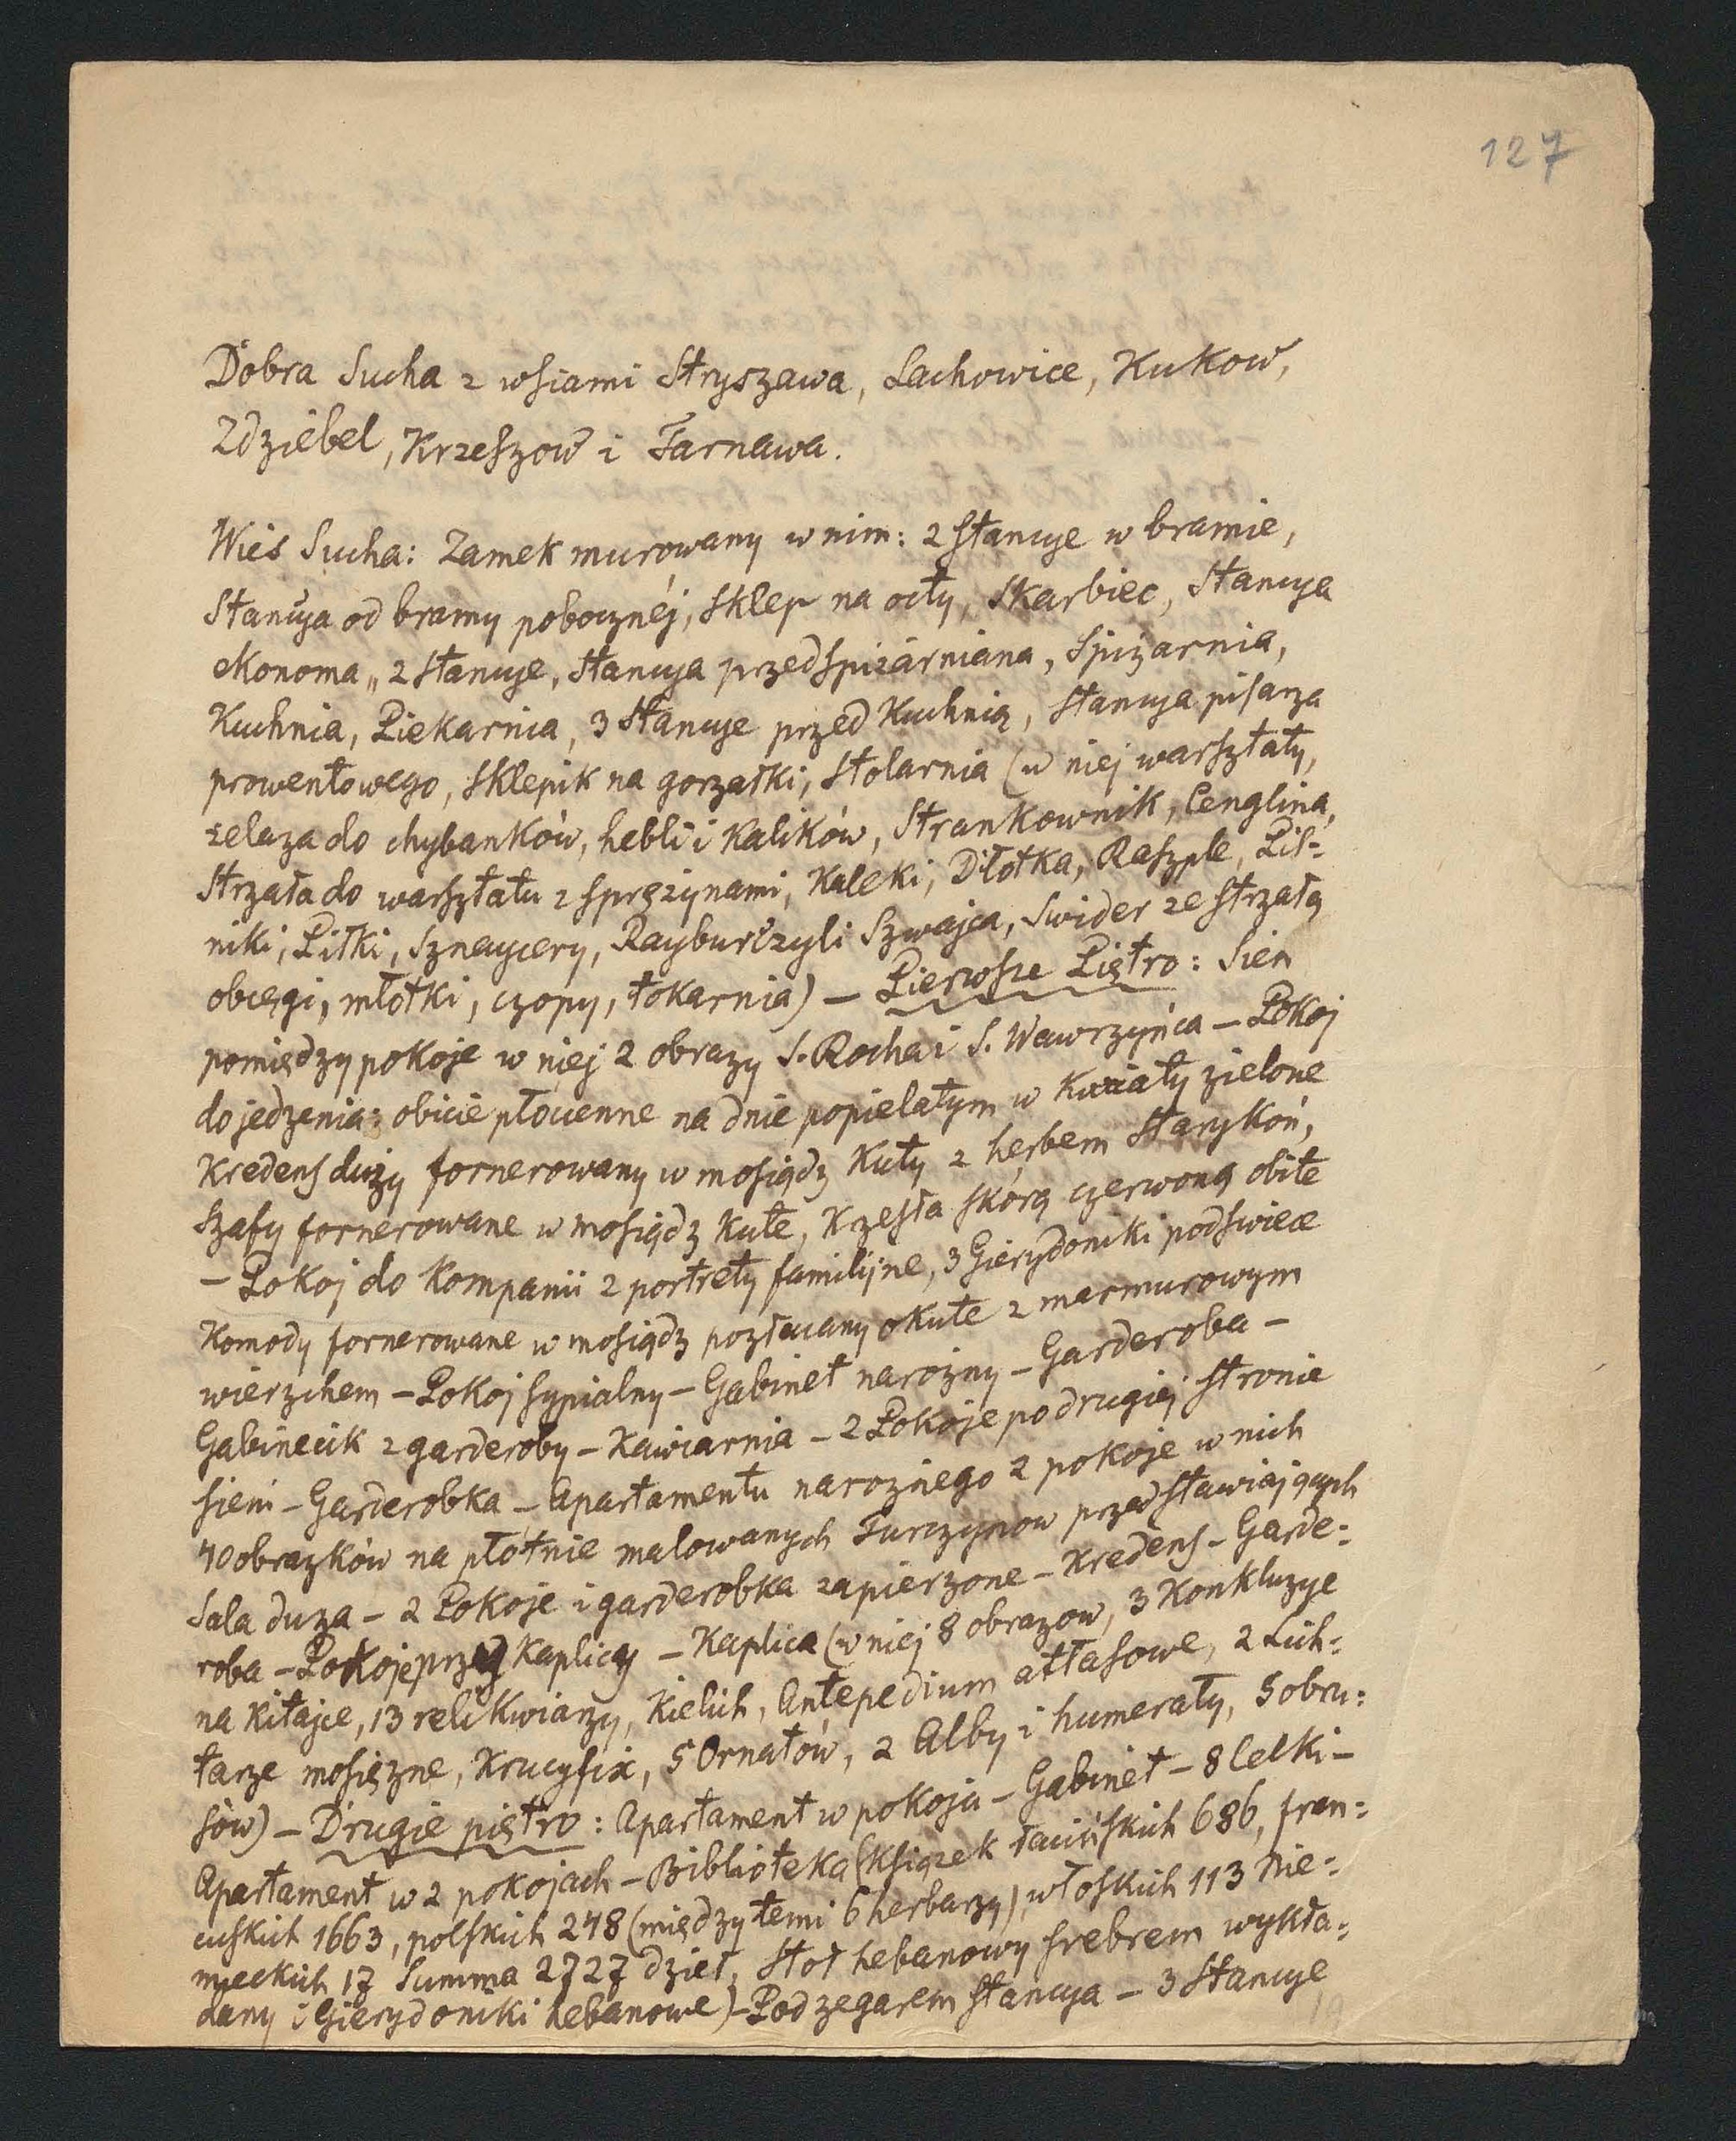 127
Dobra Sucha z wsiami Stryszawa, Lachowice, Kukow,
Zdziebel, Krzeszow i Tarnawa.
Wieś Sucha: Zamek murowany w nim: 2 Stancye w bramie,
Stancya od bramy pobocznéj, Sklep na octy, Skarbiec, Stancya
ekonoma,, 2 stancye, Stancya przedspiżarniana, Spiżarnia,
Kuchnia, Piekarnia, 3 Stancye przed Kuchnią, Stancya pisarza
prowentowego, Sklepik na gorzałki, Stolarnia (w niej warsztaty,
żelaza do chybanków, hebli i Kalików, Strankownik, Cenglina,
Strzała do warsztatu z sprężynami, Kaleki, Dłotka, Raszple, Pil=
niki, Piłki, Sznaycery, Raybur czyli Szwajca, Swider ze strzałą
obcęgi, młotki, czopy, tokarnia) – Pierwsze Piętro: Sien
pomiędzy pokoje w niej 2 obrazy S. Rocha i S. Wawrzyńca – Pokoj
do jedzenia: obicie płocienne na dnie popielatym w Kwiaty zielone
Kredens duży fornerowany w mosiądz Kuty z herbem Starykoń,
Szafy fornerowane w mosiądz Kute, Krzesła skórą czerwoną obite
– Pokoj do Kompanii 2 portrety familijne, 3 Gierydoniki pod swiece
Komody fornerowane w mosiądz pozłacany okute z marmurowym
wierzchem – Pokoj sypialny – Gabinet narożny – Garderoba –
Gabinecik z garderoby – Kawiarnia – 2 Pokoje po drugiej stronie
sieni – Garderobka – Apartamentu narożnego 2 pokoje w nich
40 obrazków na płótnie malowanych Turczynow przedstawiających
Sala duza – 2 Pokoje i garderobka zapierzone – Kredens – Garde=
roba – Pokoje przed Kaplicą – Kaplica (w niej 8 obrazow, 3 Konkluzye
na Kitajce, 13 relikwiarzy, Kielich, Antepedium atłasowe, 2 Lich=
tarze mosiężne, Krucyfix, 5 Ornatów, 2 Alby i humerały, 5 obru=
sów) – Drugie piętro: Apartament w pokoju – Gabinet – 8 Celki –
Apartament w 2 pokojach – Biblioteka (Książek łacińskich 686, fran=
cuskich 1663, polskich 248 (między temi 6 herbarzy), włoskich 113 Nie=
mieckich 17 Summa 2727 dzieł, Stoł hebanowy srebrem wykła=
dany i Gierydoniki hebanowe) – Pod zegarem Stancya – 3 Stancye